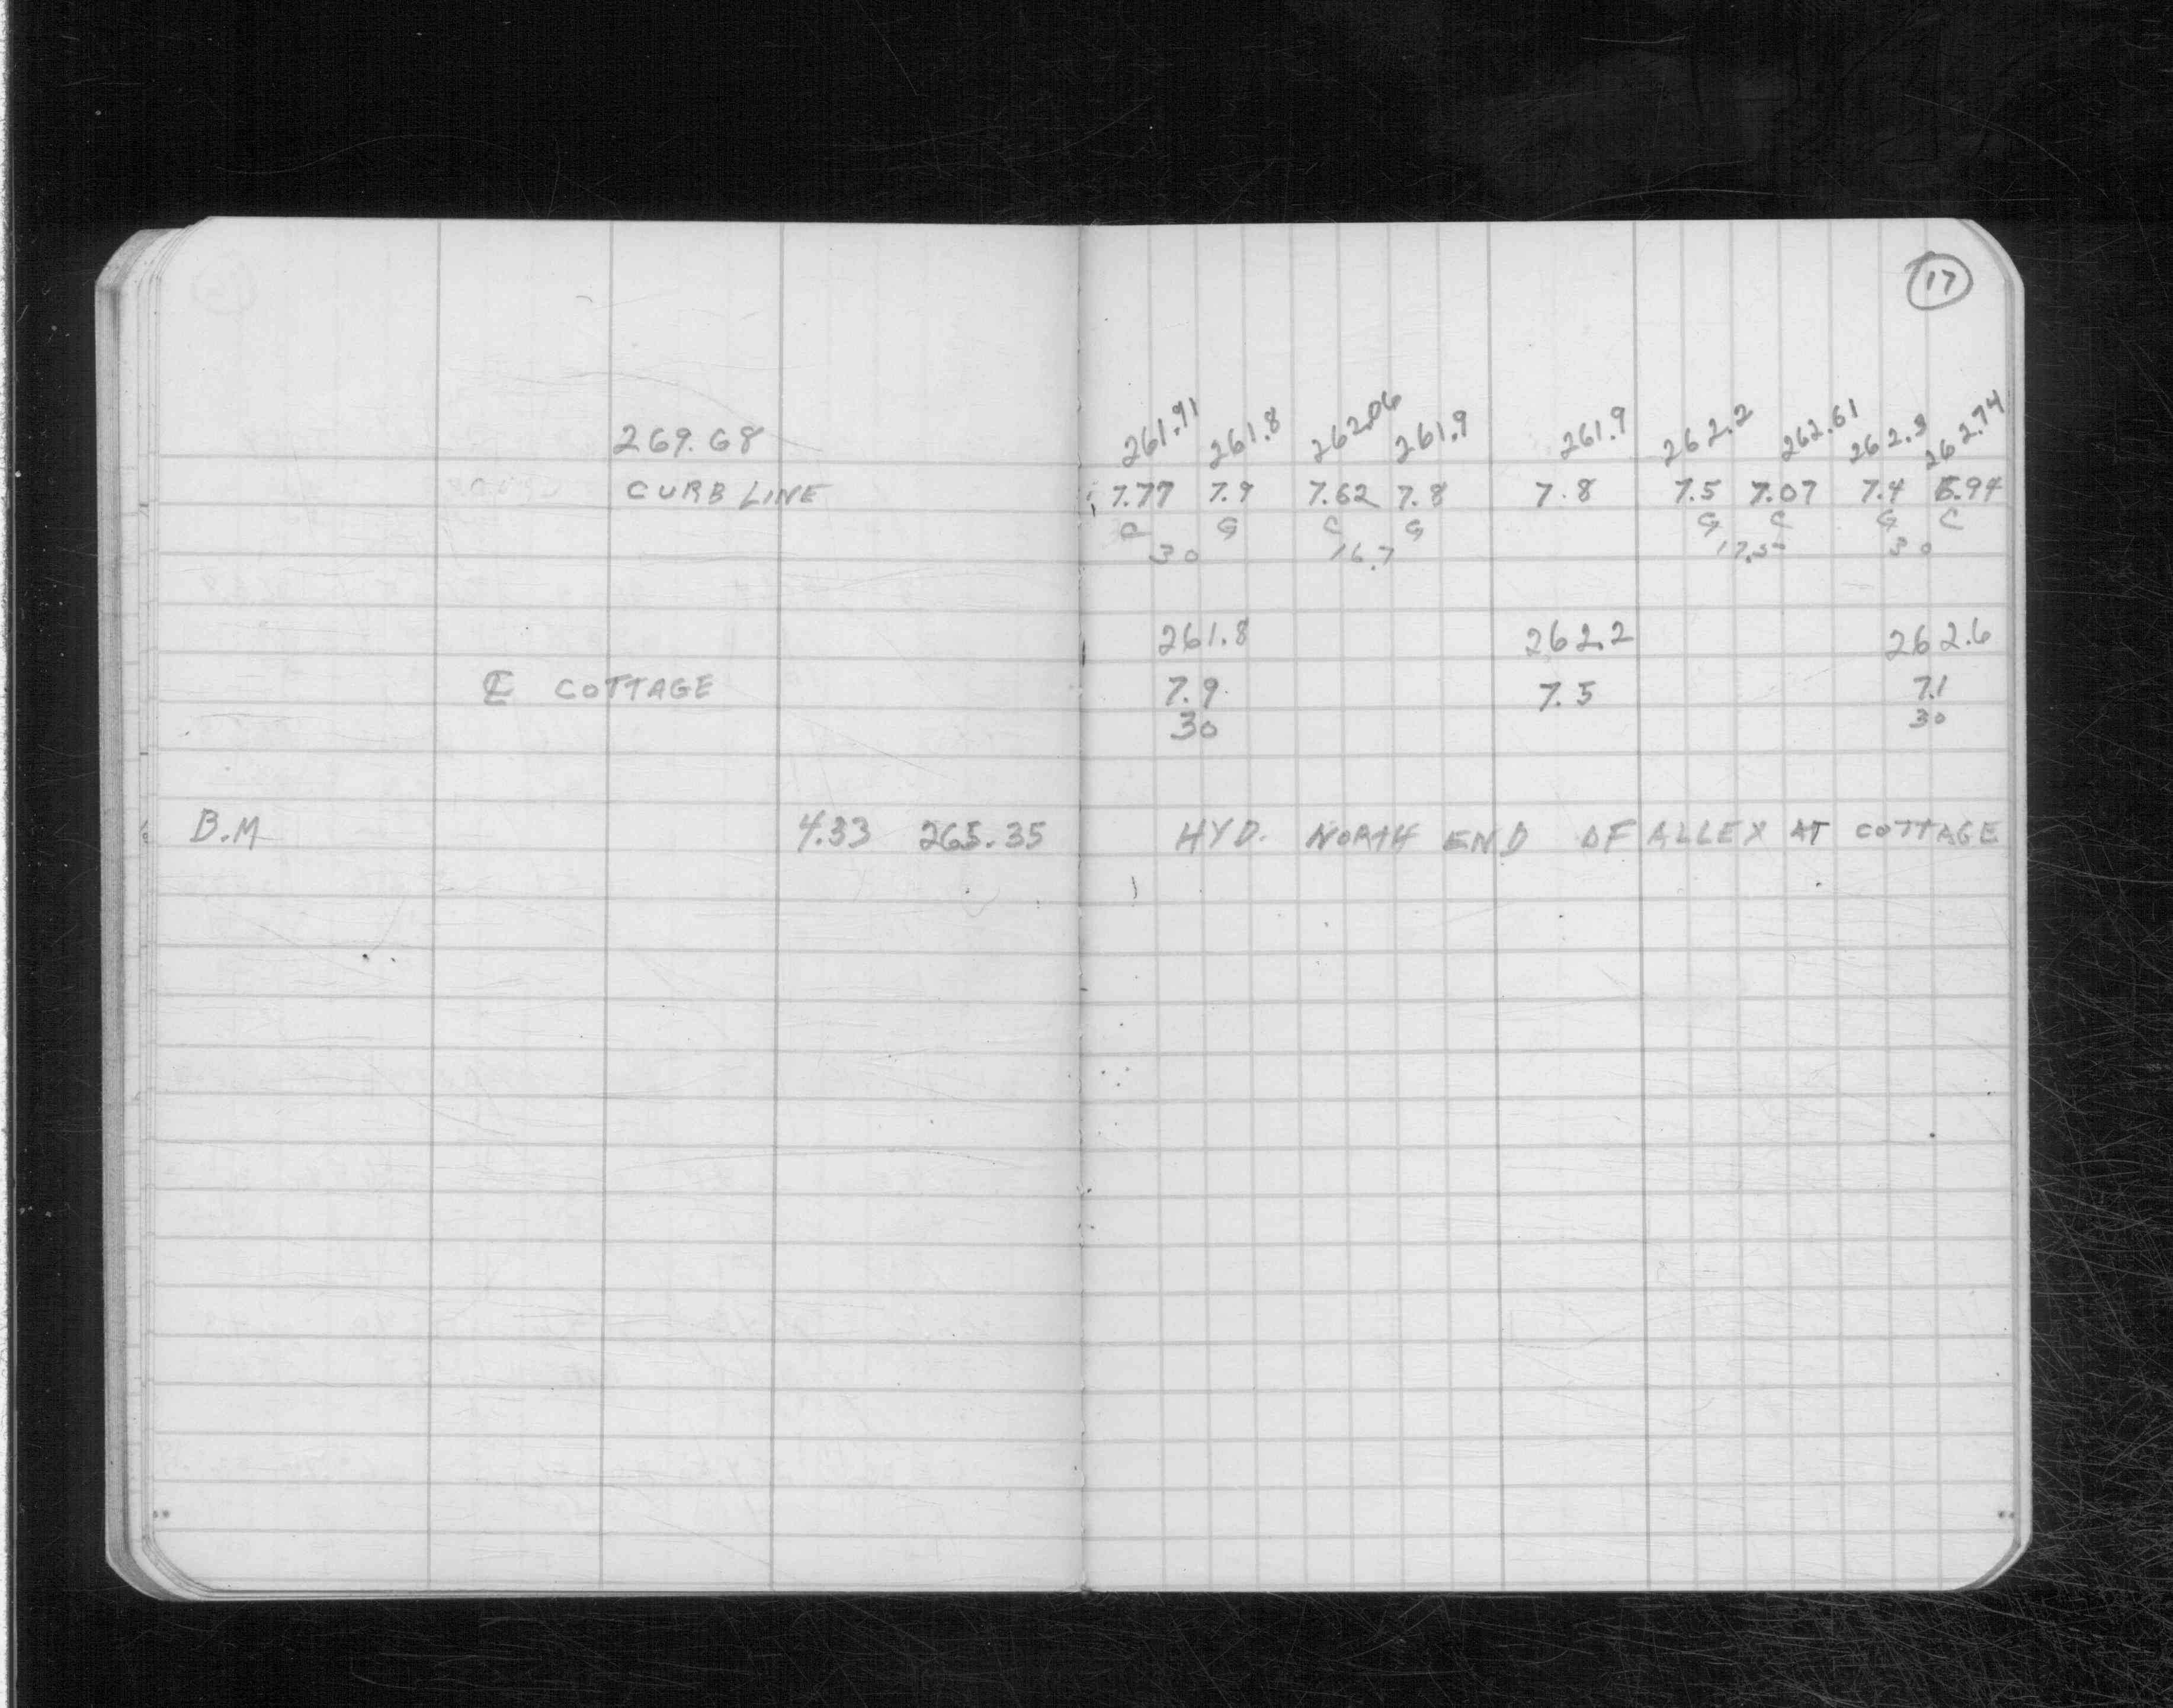 17
269.68 261.91 261.8 262.06 261.9 261.9 262.2 262.61 262.3 262.74
CURB LINE 7.77 7.9 7.62 7.8 7.8 7.5 7.07 7.4 6.94
C G C G G C G C
30 16.7 17.5 30
261.8 262.2 262.6
℄ COTTAGE 7.9 7.5 7.1
30 30
B.M 4.33 265.35 HYD. NORTH END OF ALLEY AT COTTAGE